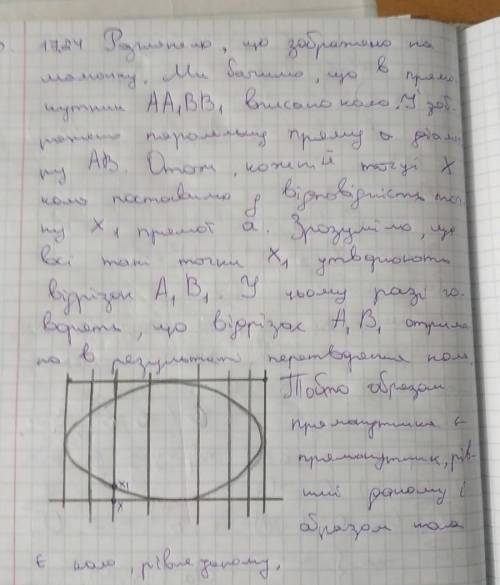 17.24 Розглянемо, що зображено на
малюнку. Ми бачимо, що в прямо
кутник AA₁BB₁ вписано коло. У зоб
ражено паралельну пряму a діаме
ру AB. Отож, кожній точці X
кола поставимо у відповідність точ
ку X₁ прямої a. Зрозуміло, що
всі такі точки X₁ утворюють
відрізок A₁B₁. У цьому разі го
ворять, що відрізок A₁B₁ отрима
но в результаті перетворення кола.
Тобто образом
прямокутника є
прямокутник, рів-
ний даному і
образом кола
X₁
X
є коло, рівне даному.